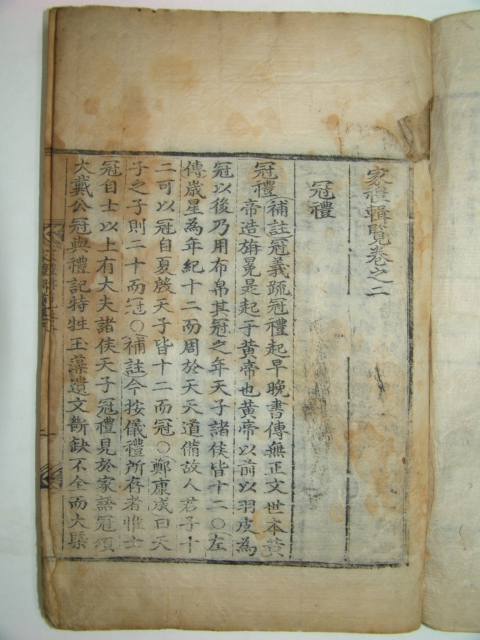 家禮輯覽卷之二
冠禮
冠禮補註冠義疏冠禮起早晚書傳無正文世本黃
帝造旃冕是起于黃帝也黃帝以前以羽皮為
冠以後乃用布帛其冠之年天子諸侯皆十二○左
傳歲星為年紀十二而周於天天道備故人君子十
二可以冠自夏啟天子皆十二而冠○鄭康成曰天
子之子則二十而冠○補註今按儀禮所存者惟士
冠自士以上有大夫諸侯天子冠禮見於家語冠頌
大戴公冠與禮記特牲玉藻遺文斷缺不全而大槩